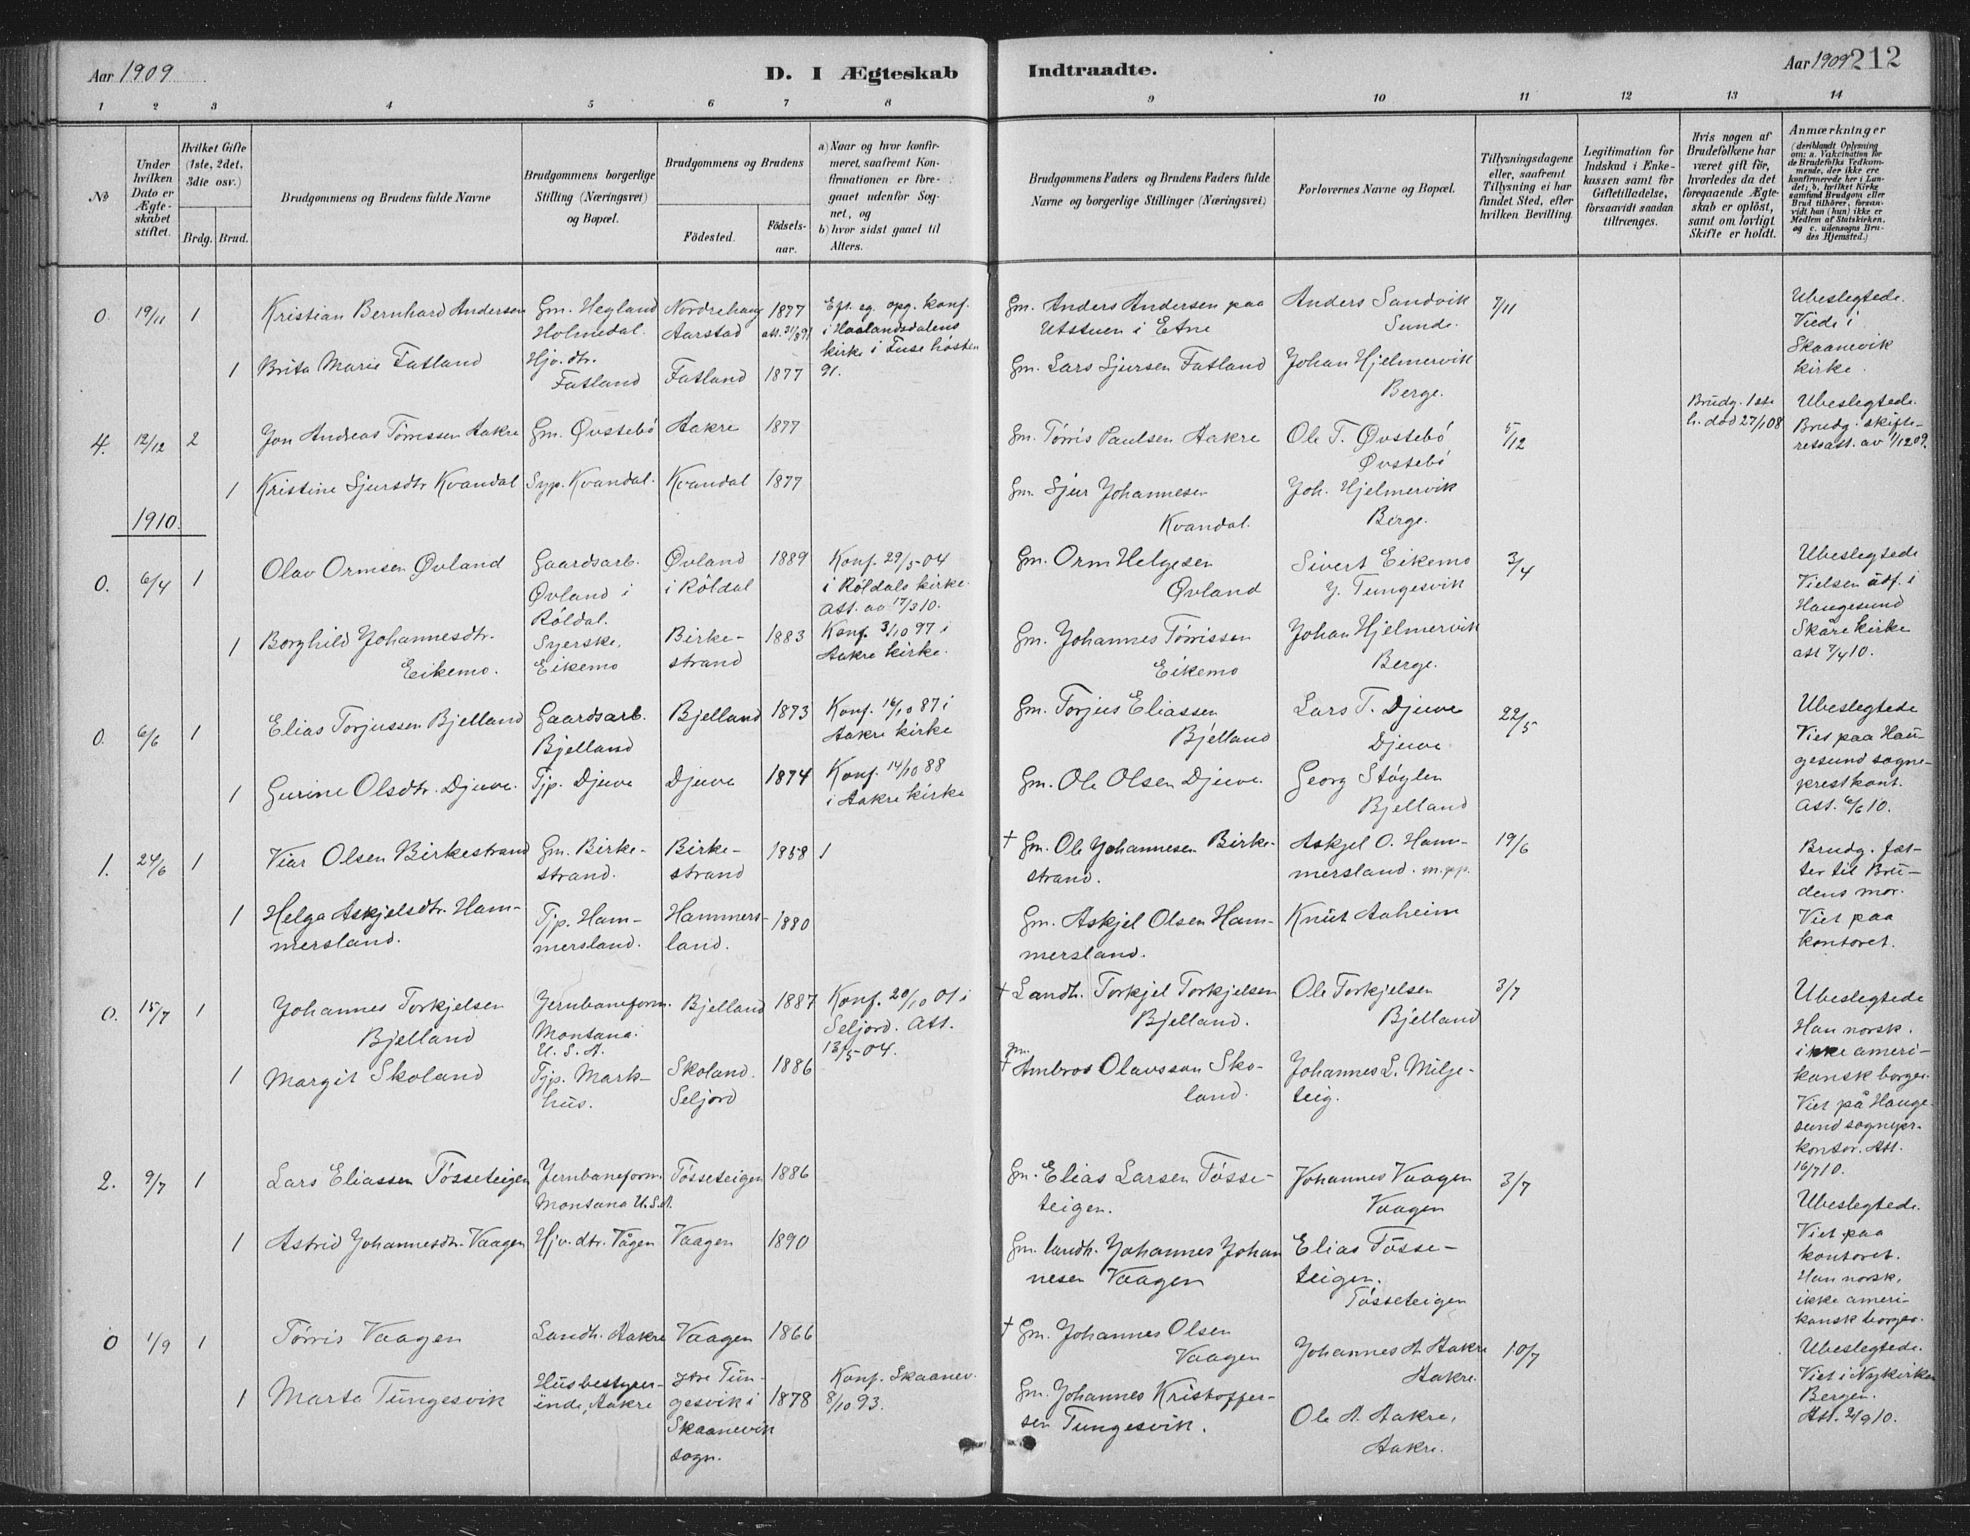 Aar 1909
D. I Ægteskab Indtraadte.
Aar 1909
212
1 2 3 4 5 6 7 8 9 10 11 12 13 14
No
Under hvilken Dato er Ægteskabet stiftet.
Hvilket Gifte (1ste, 2det, 3die osv.)
Brdg. Brud.
Brudgommens og Brudens fulde Navne
Brudgommens borgerlige Stilling (Næringsvei) og Bopæl.
Brudgommens og Brudens
Födested.
Födselsaar.
a) Naar og hvor konfirmeret, saafremt Konfirmationen er foregaaet udenfor Sognet, og
b) hvor sidst gaaet til Alters.
Brudgommens Faders og Brudens Faders fulde Navne og borgerlige Stillinger (Næringsvei)
Forlovernes Navne og Bopæl.
Tillysningsdagene eller, saafremt Tillysning ei har fundet Sted, efter hvilken Bevilling.
Legitimation for Indskud i Enkekassen samt for Giftetilladelse, forsaavidt saadan tiltrænges.
Hvis nogen af Brudefolkene har været gift för, hvorledes da det foregaaende Ægteskab er oplöst, samt om lovligt Skifte er holdt.
Anmærkninger (deriblandt Oplysning om: a. Vakcination for de Brudefolks Vedkommende, der ikke ere konfirmerede her i Landet; b. hvilket Kirkesamfund Brudgom eller Brud tilhörer, forsaavidt han (hun) ikke er Medlem af Statskirken, og c. udensogns Brudes Hjemsted.)
0. 19/11 1 Kristian Bernhard Andersen Gm. Hegland Holmedal. Nordrehaug Aarstad 1877 att. 31/8 91 Eft. eg. opg. konf. i Haalandsdalens kirke i Fuse hösten 91. Gm. Anders Andersen paa Utstuen i Etne Anders Sandvik Sunde. 7/11 Ubeslegtede. Viede i Skaanevik kirke.
1 Brita Marie Fatland Hjv. dtr. Fatland Fatland 1877 Gm. Lars Sjursen Fatland Johan Hjelmervik Berge.
4. 12/12 2 Jon Andreas Törressen Aakre Gm. Øvstebö Aakre 1877 Gm. Törris Paulsen Aakre Ole T. Øvstebö Øvstebö 5/12 Brudg. 1ste h. död 27/1 08 Ubeslegtede. Brudg. skifteretsatt. av 1/12 09.
1 Kristine Sjursdtr Kvandal Syp. Kvandal. Kvandal 1877 Gm. Sjur Johannesen Kvandal. Joh. Hjelmervik Berge.
1910.
0. 6/4 1 Olav Ormsen Øvland Gaardsarb. Øvland i Röldal. Øvland i Röldal 1889 Konf. 29/5-04 i Röldals kirke. Att. av 17/3 10. Gm. Orm Helgesen Øvland Sivert Eikemo Y. Tungesvik 3/4 Ubeslegtede Vielsen utf. i Haugesund Skåre kirke att 7/4 10.
1 Borghild Johannesdtr. Eikemo. Syerske, Eikemo Birkestrand 1883 Konf. 3/10 97 i Aakre kirke. Gm. Johannes Törrissen Eikemo Johan Hjelmervik Berge.
0. 6/6 1 Elias Torjussen Bjelland Gaardsarb. Bjelland Bjelland 1873 Konf. 16/10 87 i Aakre kirke Gm. Torjus Eliassen Bjelland Lars T. Djuve Djuve 22/5 Ubeslegtede Viet paa Haugesund sogneprestkont. Att. 6/6 10.
1 Gurine Olsdtr. Djuve. Tjp. Djuve Djuve 1874 Konf. 14/10 88 i Aakre kirke Gm. Ole Olsen Djuve. Georg Stöglen Bjelland
1. 24/6 1 Viar Olsen Birkestrand Gm. Birkestrand. Birkestrand 1858 1 † Gm. Ole Johannesen Birkestrand. Askjel O. Hammersland. m.p.p. 19/6 Brudg. fætter til Brudens mor. Viet paa kontoret.
1 Helga Askjelsdtr. Hammersland. Tjp. Hammersland. Hammersland. 1880 Gm. Askjel Olsen Hammersland. Knut Aaheim
0. 15/7 1 Johannes Torkjelsen Bjelland Jernbaneform. Montana. U. S. A. Bjelland 1887 Konf. 20/10 01 i Seljord. Att. 13/5-04. † Landh. Torkjel Torkjelsen Bjelland. Ole Torkjelsen Bjelland 3/7 Ubeslegtede Han norsk. ikke amerikansk borger. Viet på Haugesund sognepr. kontor. Att. 16/7 10.
1 Margit Skoland Tjp. Markhus. Skoland. Seljord 1886 gm. † Ambros Olavsson Skoland. Johannes L. Miljeteig.
2. 9/7 1 Lars Eliassen Tösseteigen Jernbaneform. Montana U.S.A. Tösseteigen 1886 Gm. Elias Larsen Tösseteigen. Johannes Vaagen Vaagen 3/7 Ubeslegtede. Viet paa kontoret. Han norsk, ikke amerikansk borger.
1 Astrid Johannesdtr. Vaagen Hjv. dtr. Vågen Vaagen 1890 Gm. landh. Johannes Johannesen Vaagen Elias Tösseteigen. Tösseteigen
0 1/9 1 Törris Vaagen Landh. Aakre Vaagen 1866 † Gm. Johannes Olsen Vaagen Johannes A. Aakre Aakre. 10/7 Ubeslegtede. Viet i Nykirken Bergen. Att. 2/9 10.
1 Marta Tungesvik Husbestyrerinde, Aakre Ytre Tungesvik i Skaanevik sogn. 1878 Konf. Skaanev. 8/10 93. Gm. Johannes Kristoffersen Tungesvik. Ole A. Aakre, Aakre.